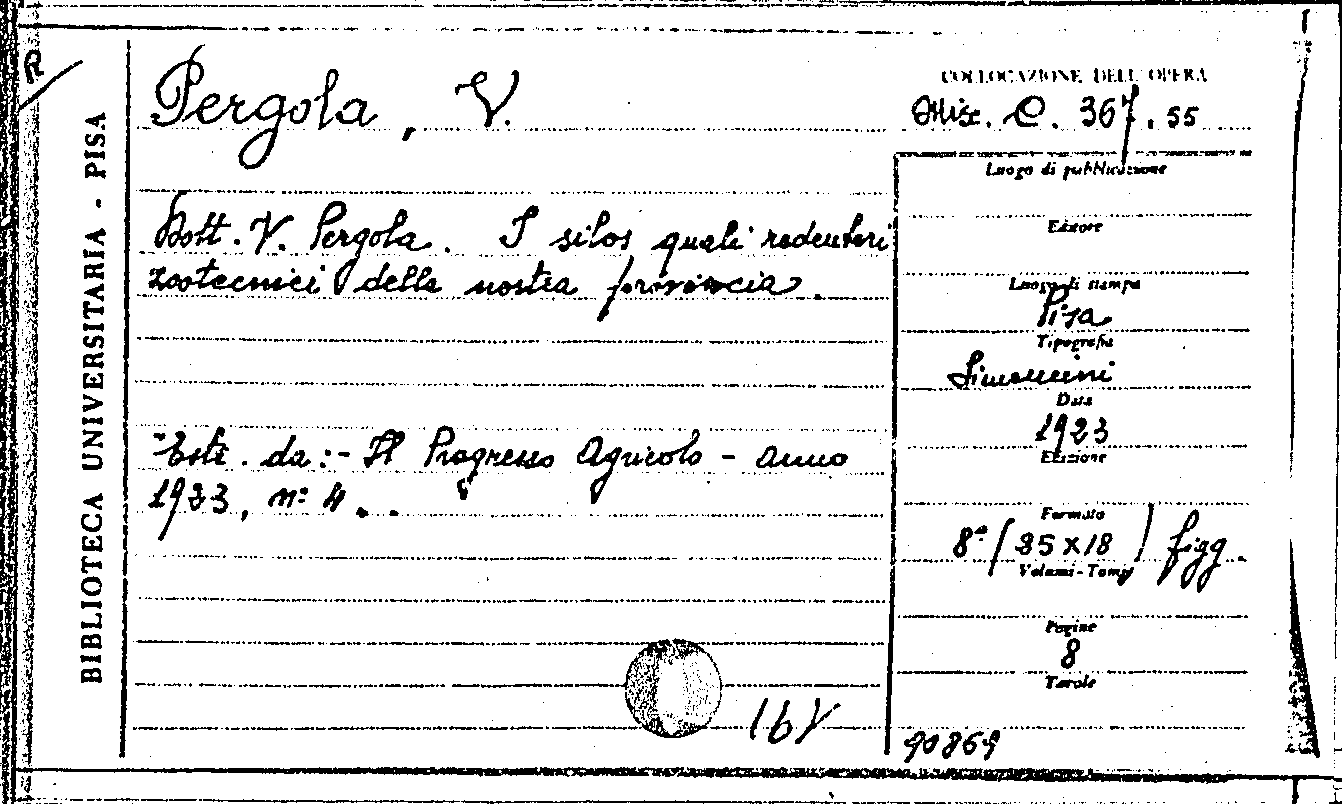 R
BIBLIOTECA UNIVERSITARIA - PISA
Pergola, V.
Dott. V. Pergola. I silos quali redentori
zootecnici della nostra provincia.
Estr. da:- Il Progresso Agricolo - anno
1923, n° 4..
16V
COLLOCAZIONE DELL'OPERA
Misc. C. 367. 55
Luogo di pubblicazione
Editore
Luogo di stampa
Pisa
Tipografia
Simoncini
Data
1923
Edizione
Formato
8° (25 x 18) figg.
Volumi - Tomi
Pagine
8
Tavole
90869